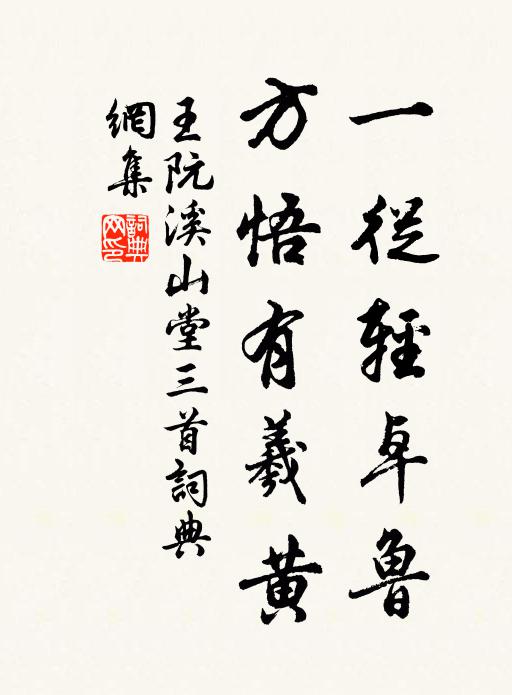 一從輕卓魯
方悟有羲黄
王阮溪山堂三首詞典
網集
詞典
网印